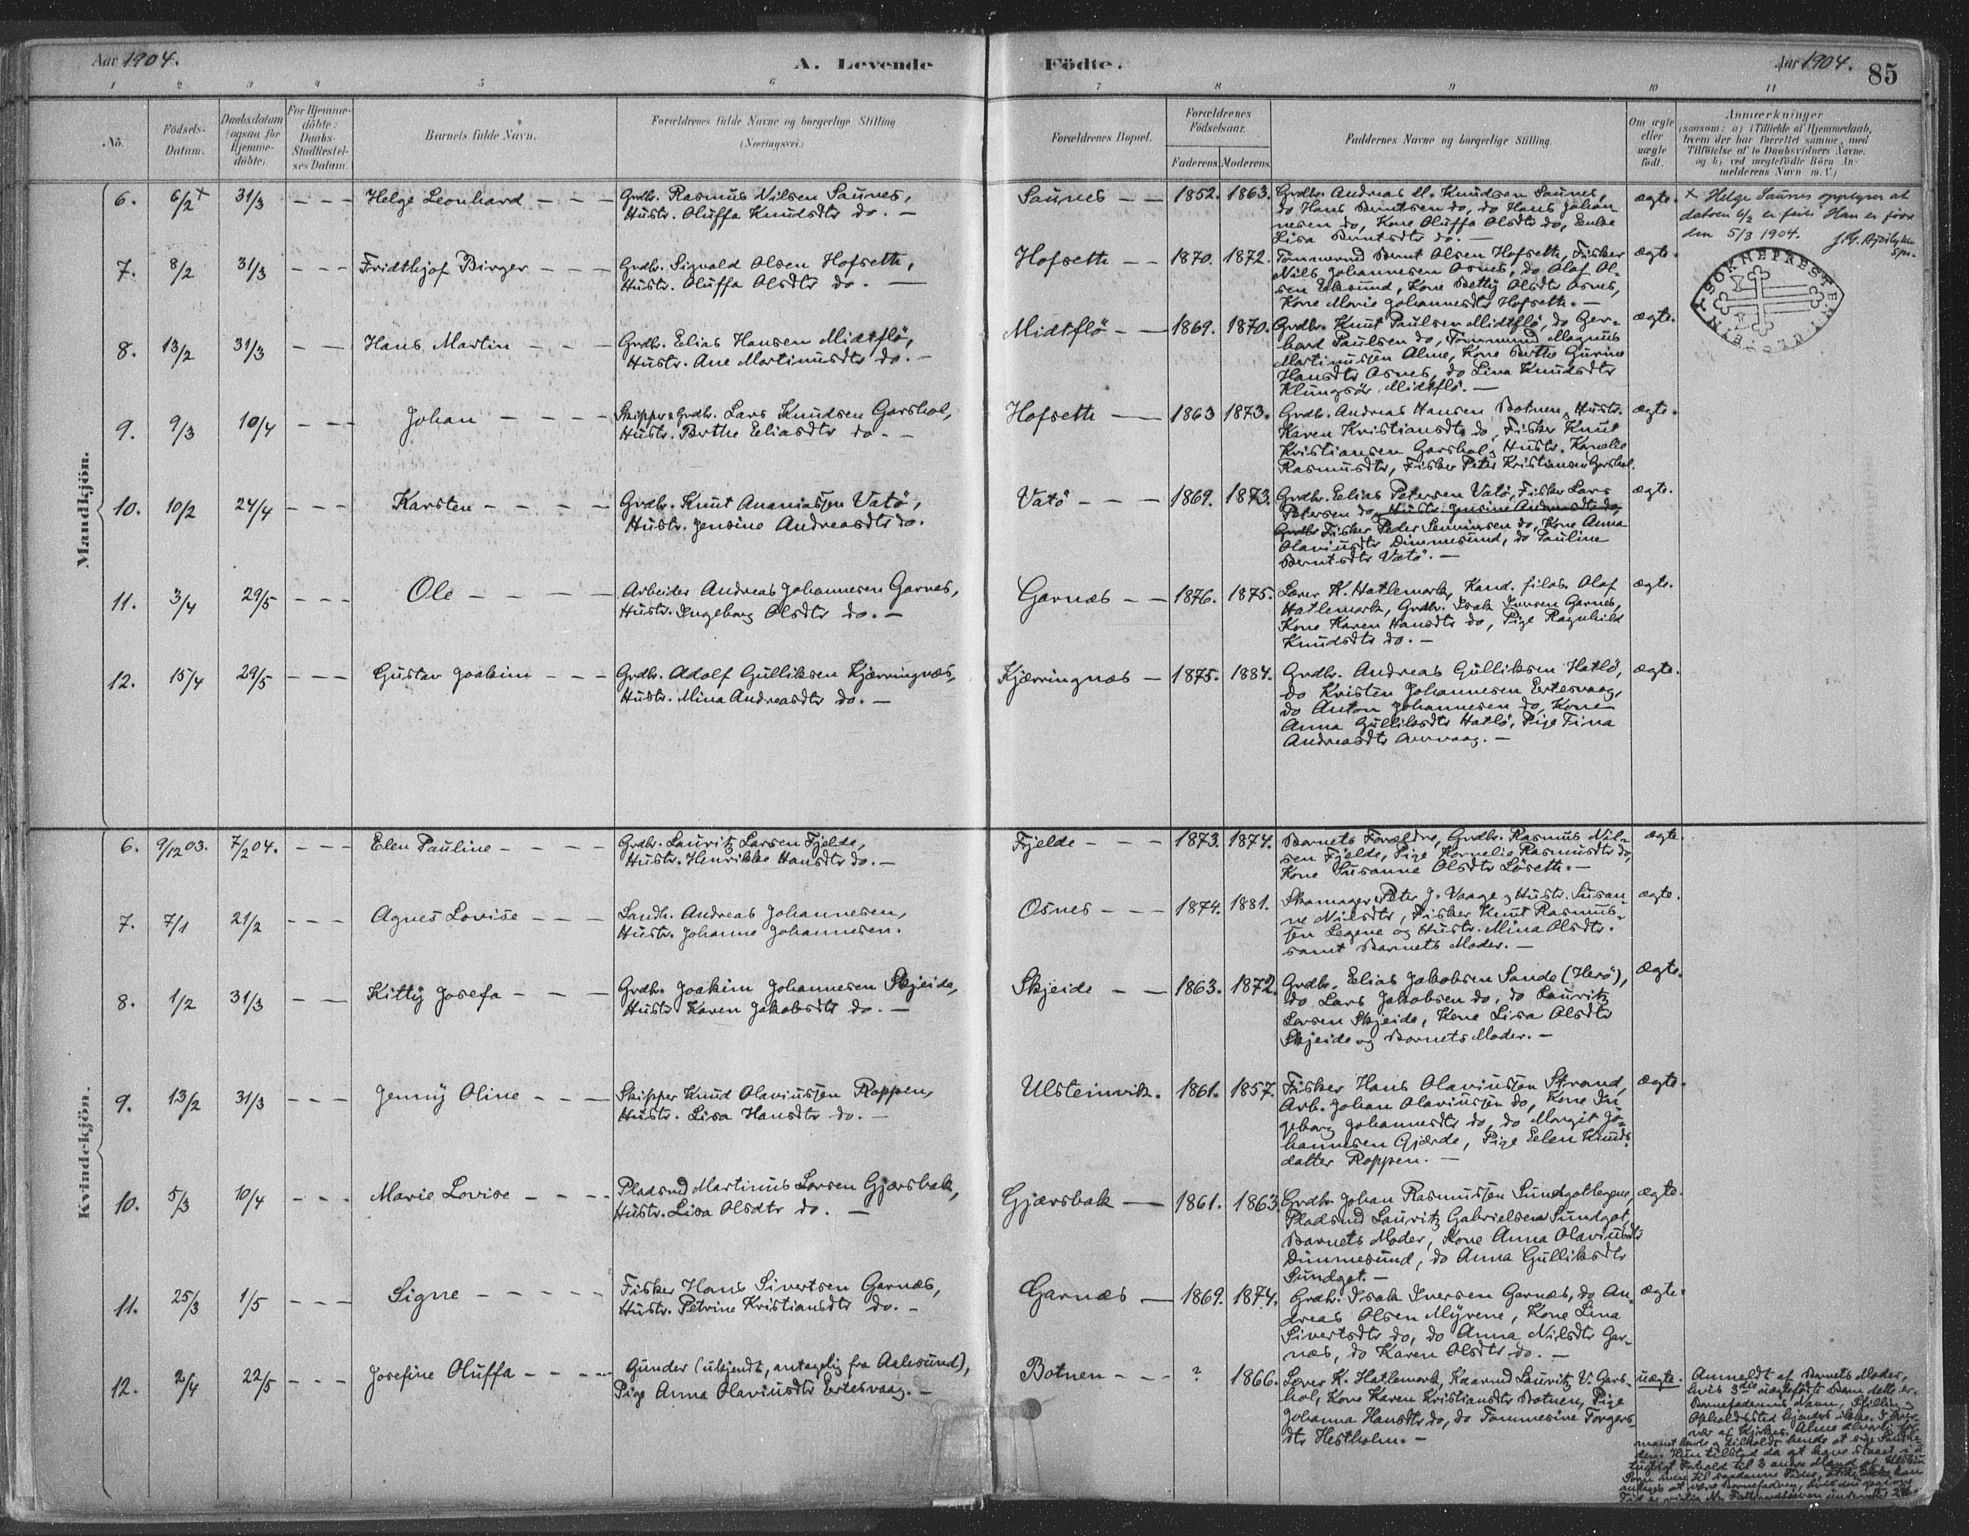 Aar 1904.
A. Levende
Födte.
Aar 1904.
85
1 2 3 4 5 6 7 8 9 10 11
No.
Födsels-
Datum.
Daabsdatum
(ogsaa for
Hjemme-
döbte).
For Hjemme-
döbte:
Daabs-
Stadfæstel-
ses Datum.
Barnets fulde Navn.
Forældrenes fulde Navne og borgerlige Stilling
(Næringsvei.)
Forældrenes Bopæl.
Forældrenes
Födselsaar.
Faderens. Moderens.
Faddernes Navne og borgerlige Stilling.
Om ægte
eller
uægte
födt.
Anmærkninger
(saasom: a) i Tilfælde af Hjemmedaab,
hvem der har forrettet samme, med
Tilföielse af to Daabsvidners Navne,
og b) ved uægtefödte Börn An-
melderens Navn m. V.)
Mandkjön.
6. 6/2 x 31/3 - - - Helge Leonhard - - -
Grdbr. Rasmus Nilsen Saunes,
Hustr. Oluffa Knudsdtr do. -
Saunes - - 1852. 1863.
Grdbr. Andreas M. Knudsen Saunes,
do Hans Berntsen do, do Hans Johan-
nesen do, Kone Oluffa Olsdtr do, Enke
Lisa Berntsdtr do. -
ægte.
x Helge Saunes opplyser at
datoen 6/2 er feil. Han er født
den 5/3 1904.
spr.
SOKNEPRESTEN I ULSTEIN
7. 8/2 31/3 - - - Fridthjof Birger - - -
Grdbr. Sigvald Olsen Hofseth,
Hustr. Oluffa Olsdtr do. -
Hofseth - - 1870. 1872.
Tømmermd Bernt Olsen Hofseth, Fisker
Nils Johannesen Osnes, do Olaf Ol-
sen Eiksund, Kone Betty Olsdtr Osnes,
Kone Marie Johannesdtr Hofseth. -
ægte.
8. 13/2 31/3 - - - Hans Martin - - -
Grdbr. Elias Hansen Midtflö,
Hustr. Ane Martinusdtr do. -
Midtflö - - 1869. 1870.
Grdbr. Knut Paulsen Midtflö, do Ger-
hard Paulsen do, Tømmermd Magnus
Martinussen Alme, Kone Berthe Gurine
Hansdtr Osnes, do Lina Knudsdtr
Klungsör, Midtflö. -
ægte.
9. 9/3 10/4 - - - Johan - - - -
Skipper & Grdbr. Lars Knudsen Garshol,
Hustr. Berthe Eliasdtr do. -
Hofseth - - 1863 1873.
Grdbr. Andreas Hansen Botnen, Hustr.
Karen Kristiansdtr do, Fisker Knut
Kristiansen Garshol, Hustr. Kornelie
Rasmusdtr, Fisker Peter Kristiansen Garshol.
ægte.
10. 10/2 24/4 - - - Karsten - - - -
Grdbr. Knut Ananiassen Vatö,
Hustr. Jensine Andreasdtr do.
Vatö - - - 1869. 1873.
Grdbr. Elias Petersen Vatö, Fisker Lars
Petersen do, Hustr. Jensine Andreasdtr do,
Grdbr Fisker Peder do, Kone Anna
Olaviusdtr Dimmesund, do Pauline
Berntsdtr Vatö. -
ægte.
11. 3/4 29/5 - - - Ole - - - -
Arbeider Andreas Johannesen Garnes,
Hustr. Ingeborg Olsdtr do. -
Garnæs - - 1876. 1875.
Lærer K. Hatlemark, Kand. filos. Olaf
Hatlemark, Grdbr. Isak Iversen Garnes,
Kone Karen Hansdtr do, Pige Ragnhild
Knudsdtr do. -
ægte.
12. 15/4 29/5 - - - Gustav Joakim - - -
Grdbr. Adolf Gulliksen Kjærringnæs,
Hustr. Mina Andreasdtr do. -
Kjærringnæs - 1875. 1884.
Grdbr. Andreas Gulliksen Hatlö,
do Kristen Johannesen Eertesvaag,
do Anton Johannesen do, Kone
Anna Gulliksdtr Hatlö, Pige Tina
Andreasdtr -
ægte.
Kvindekjön.
6. 9/12 03. 7/2 04. - - - Elen Pauline - - - -
Grdbr. Lauritz Larsen Fjelde,
Hustr. Henrikke Hansdtr do. -
Fjelde - - - 1873. 1874.
Barnets Forældre, Grdbr. Rasmus Nil-
sen Fjelde, Pige Kornelie Rasmusdtr do,
Kone Susanne Olsdtr Löseth. -
ægte.
7. 7/1 21/2 - - - Agnes Lovise - - -
Landh. Andreas Johannesen,
Hustr. Johanne Johannesen.
Osnes - - - 1874. 1881.
Skomager Peter J. Vaage, Hustr. Susan-
ne Nilsdtr, Fisker Knut Rasmus-
sen Legene og Hustr. Mina Olsdtr.
samt Barnets Moder. -
ægte.
8. 1/2 31/3 - - Kitty Josefa - - -
Grdbr. Joakim Johannesen Skjeide,
Hustr Karen Jakobsdtr do. -
Skjeide - - 1863. 1872.
Grdbr. Elias Jakobsen Sande (Herö),
do Lars Jakobsen do, do Lauritz
Larsen Skjeide, Kone Lisa Olsdtr
Skjeide og Barnets Moder. -
ægte.
9. 13/2 31/3 - - - Jenny Oline - - -
Skipper Knud Olaviussen Roppen,
Hustr. Lisa Hansdtr do. -
Ulsteinvik. 1861. 1857.
Fisker Hans Olaviussen Strand,
Arb. Johan Olaviussen do, Kone In-
geborg Johannesdtr do, do Margit Jo-
hannesen Gjerde, Pige Eelen Knuds-
datter Roppen. -
ægte.
10. 5/3 10/4 - - - Marie Lovise - - - -
Pladsmd Martinus Larsen Gjærsbak,
Hustr. Lisa Olsdtr do. -
Gjærsbak - 1861. 1863.
Grdbr. Johan Rasmussen Sundgotlegene,
Pladsmd Lauritz Gabrielsen Sundgot,
Barnets Moder, Kone Anna Olaviusdtr
Dimmesund, do Anna Gulliksdtr
Sundgot. -
ægte.
11. 25/3 1/5 - - - Signe - - - - -
Fisker Hans Sivertsen Garnæs,
Hustr. Petrine Kristiansdtr do. -
Garnæs - 1869. 1874.
Grdbr. Isak Iversen Garnæs, do An-
dreas Olsen Myrene, Kone Lina
Sivertsdtr do, do Anna Nilsdtr Gar-
næs, do Karen Olsdtr do. -
ægte.
12. 2/4 22/5 - - - Josefine Oluffa - - - -
Gunder (ubekjendt, antagelig fra Aalesund),
Pige Anna Olaviusdtr Eertesvaag. -
Botnen - - - ? 1866.
Lærer K. Hatlemark, Kaarmd Lauritz V. Gars-
hol, Kone Karen Kristiansdtr Botnen, Pige
Johanna Hansdtr do, do Tommesine Torgers-
dtr Hestholm. -
uægte.
Anmeldt af Barnets Moder,
hvis 3die uægtefødte Barn dette er.
Barnefaderens Navn, Stilling &
Opholdssted kjendes ikke.